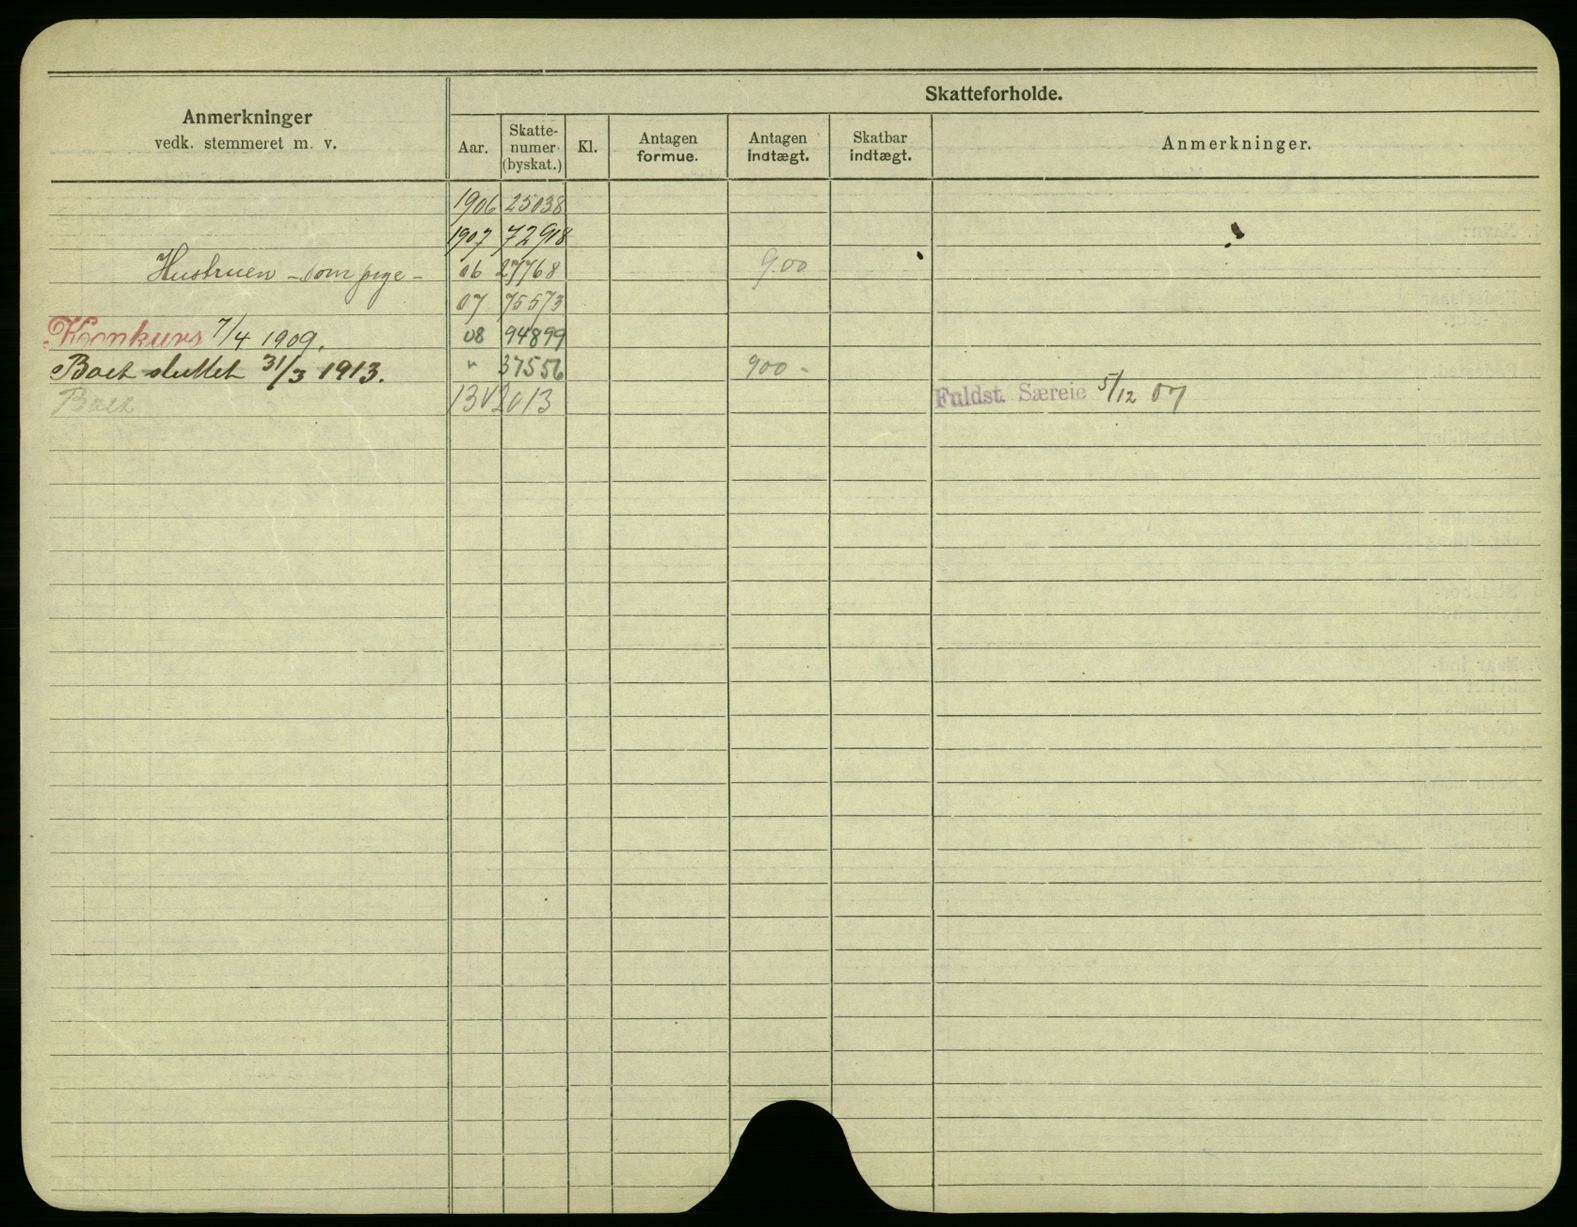 Skatteforholde.
Anmerkninger
vedk. stemmeret m. v.
Aar.
Skatte-
numer
(byskat.)
Kl.
Antagen
formue.
Antagen
indtægt.
Skatbar
indtægt.
Anmerkninger.
1906 25038
1907 72918
Hustruen - som pige - 06 27768 900
07 75573
Konkurs 7/4 1909. 08 94899
Boet sluttet 31/3 1913. " 37556 900 -
Boet 13 V 2013 Fuldst. Særeie 5/12 07